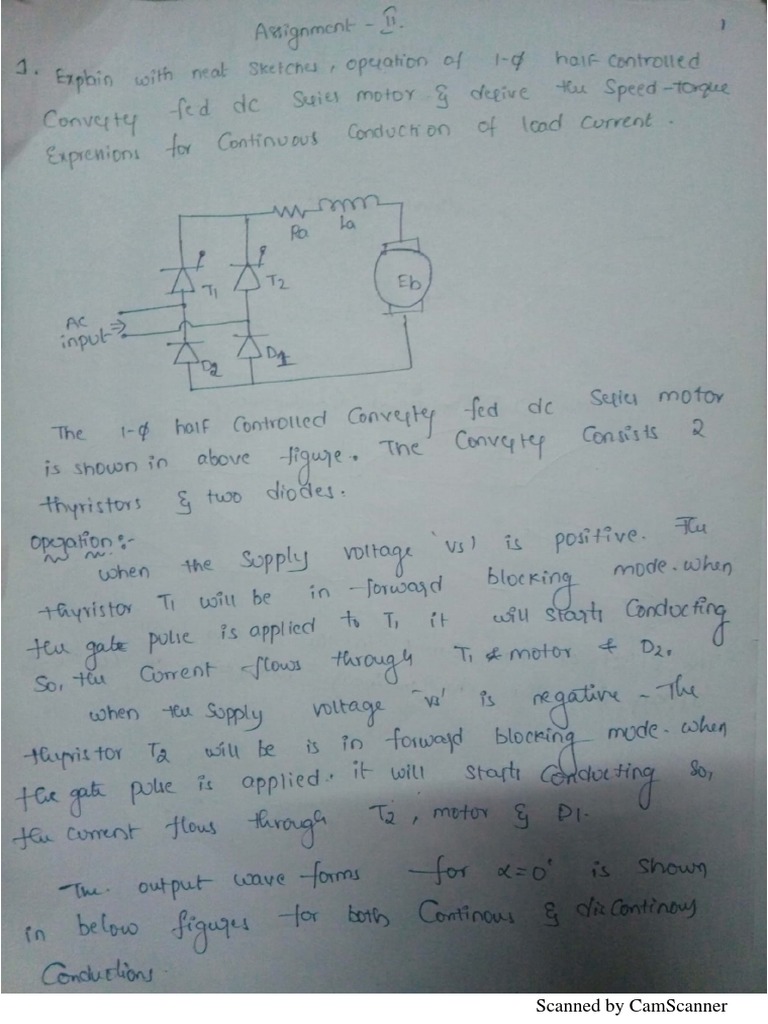 Assignment - II.
1
1. Explain with neat sketches, operation of 1-ϕ half controlled
Converter fed dc Series motor & derive the Speed-torque
Expressions for Continuous Conduction of load current.
Ra La
T1 T2
Eb
AC
input ⇒
D2 D1
The 1-ϕ half Controlled Converter fed dc Series motor
is shown in above figure. The Converter Consists 2
thyristors & two diodes.
Operation:-
when the supply voltage 'vs' is positive. The
thyristor T1 will be in forward blocking mode. when
the gate pulse is applied to T1 it will starts Conducting
So, the Current flows through T1 & motor & D2.
when the supply voltage 'vs' is negative - The
thyristor T2 will be is in forward blocking mode. when
the gate pulse is applied. it will starts Conducting So,
the current flows through T2, motor & D1.
The output wave forms for α=0° is shown
in below figures for both Continous & discontinous
Conductions.
Scanned by CamScanner